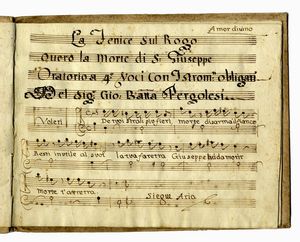 Amor divino
La Fenice Sul Rogo
Overo la Morte di S. Giuseppe
Oratorio a 4 Voci Con Istrom. obligati
Del Sig. Gio. Batta Pergolesi
De tuoi strali più fieri, morte disarma il
Rem inutile al
la tua faretra Giuseppe hà da morir
morte t'arretra
Siegue Aria